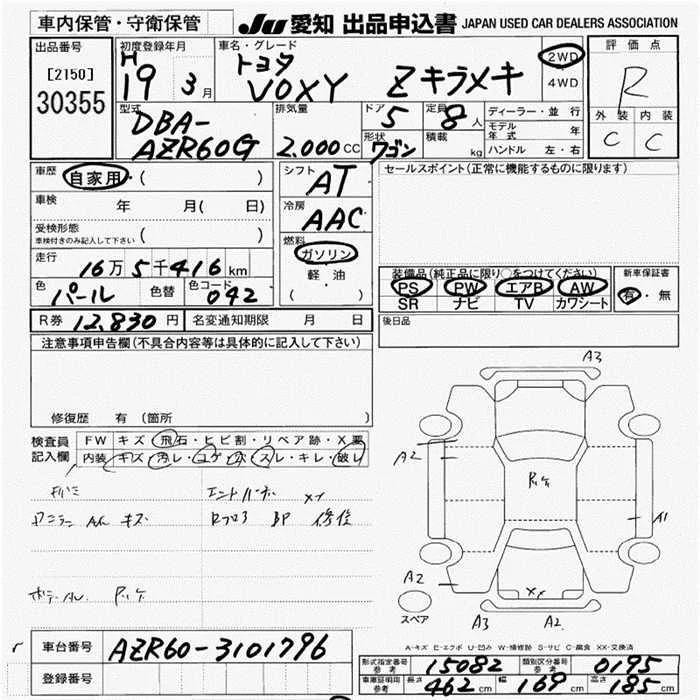 車内保管・守衛保管
JU 愛知 出品申込書 JAPAN USED CAR DEALERS ASSOCIATION
出品番号
[2150]
30355
初度登録年月
H 19 3月
車名・グレード
トヨタ VOXY Zキラメキ
2WD
4WD
評価点
R
外装 内装
C C
型式
DBA-AZR60G
排気量
2.000CC
ドア
5
定員
8人
形状
ワゴン
積載
kg
ディーラー・並行
モデル年式 年
ハンドル 左・右
車歴 自家用・( )
車検 年 月( 日)
受検形態
車検付きのみ記入して下さい ( )
走行 16万5千416km
色 パール 色替 色コード 042
シフト
AT
冷房
AAC
燃料
ガソリン
軽・油
( )
セールスポイント(正常に機能するものに限ります)
装備品(純正品に限り○をつけてください)
PS PW エアB AW
SR ナビ TV カワシート
新車保証書
有・無
R券 12,830円 名変通知期限 月 日
後日品
注意事項申告欄(不具合内容等は具体的に記入して下さい)
修復歴 有(箇所 )
検査員記入欄
FW キズ・飛石・ヒビ割・リペア跡・X要
内装 キズ・汚レ・コゲ・穴・スレ・キレ・破レ
キズ
修復
A3
A2
A1
A2
XX
A3 A2
スペア
A-キズ E-エクボ U-凹み W-補修跡 S-サビ C-腐食 XX-交換済
車台番号 AZR60-3101796
登録番号
形式指定番号参考 15082 類別区分番号参考 0195
車庫証明用参考 長さ 462cm 幅 169cm 高さ 185cm